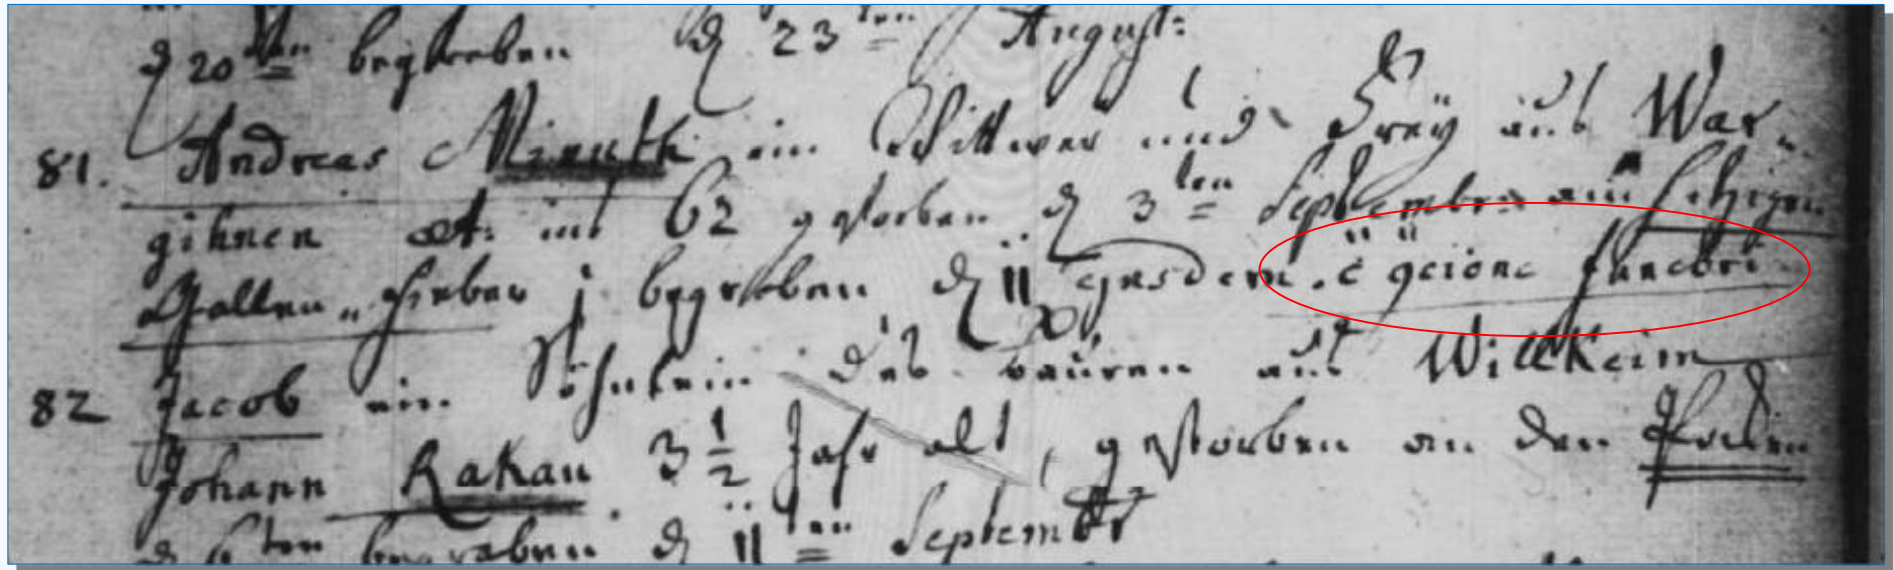 d 20ten begraben d 23ten August:
81. Andreas Mieruth ein Wittwer und Frey aus War„
gihnen æt: int 62 gestorben d 3ten Septembr: am hizigen
Gallen„Fieber, begraben d 11 ejusdem. c̄ ꝗcione funebri.
82 Jacob ein Söhnlein des Bauren aus Willkeim
Johann Rakau 3 1/2 Jahr alt, gestorben an den Poken
d 6ten begraben d 11ten Septembr